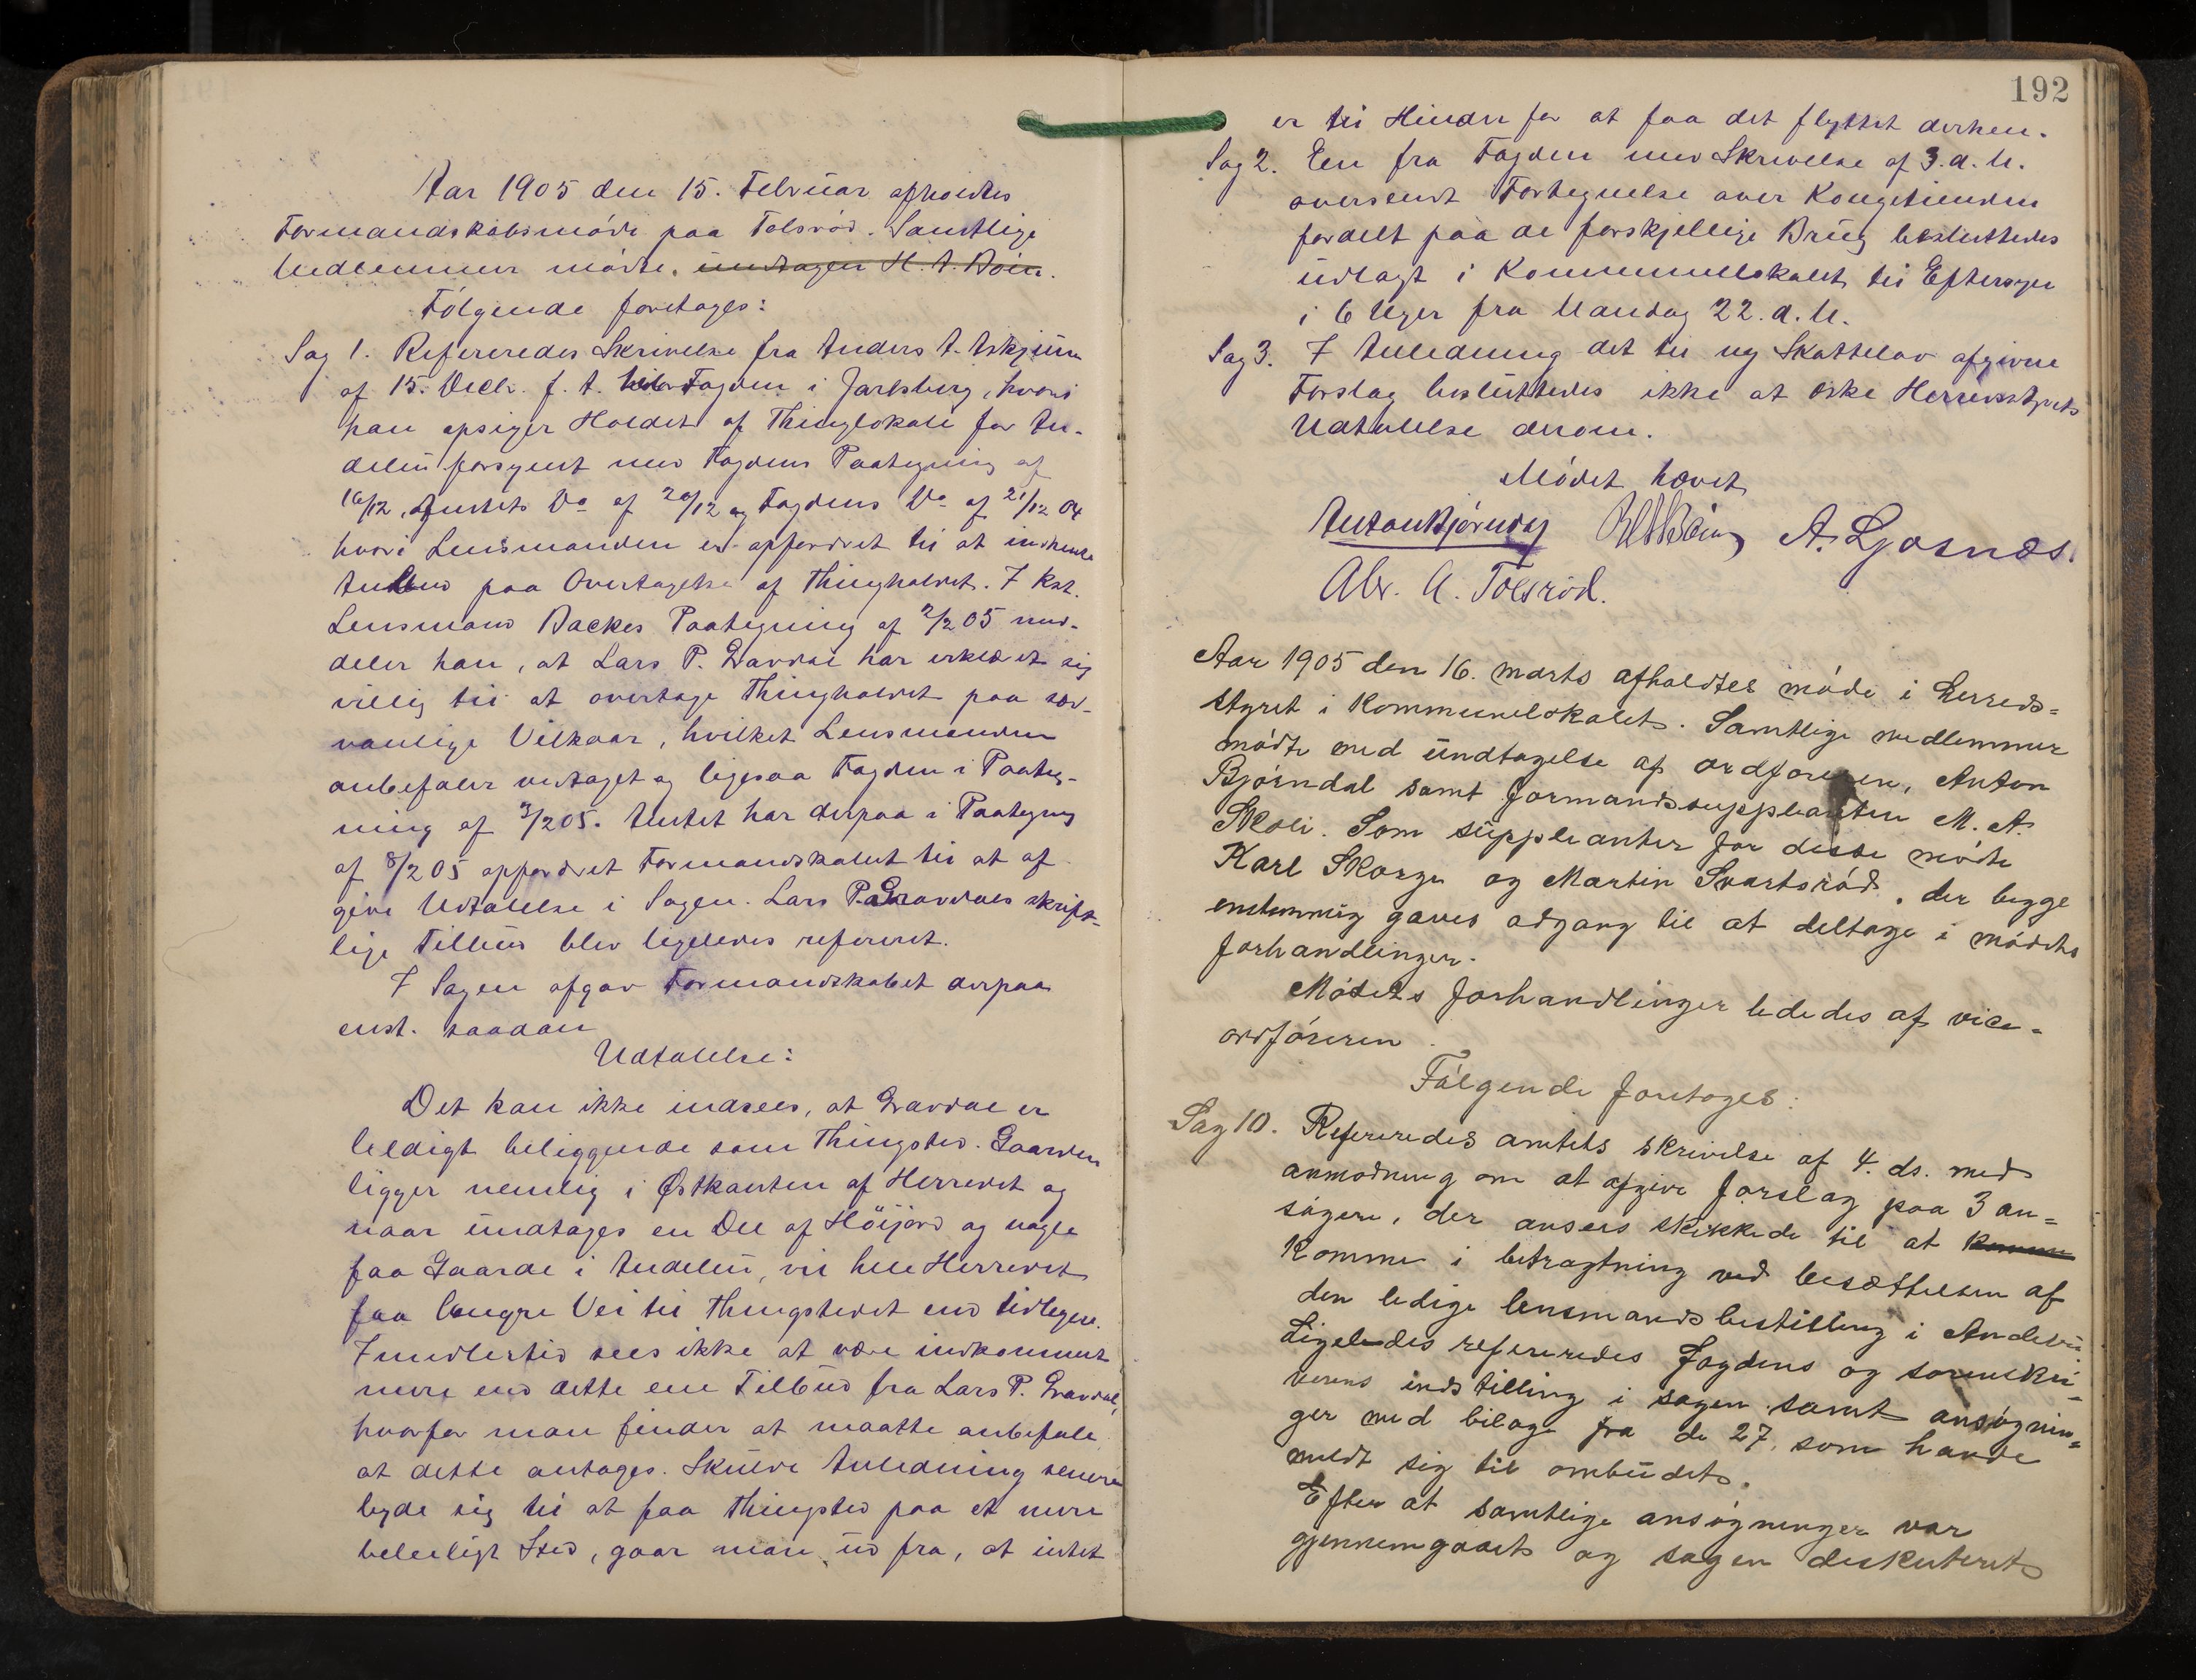 Aar 1905 den 15. Februar afholdtes
Formandskabsmøde paa Tolsrød. Samtlige
Medlemmer mødte. undtagen H. A. Bøin.
Følgende foretoges:
Sag 1. Refereredes Skrivelse fra Anders A. Askjum
af 15. Decb. f. A. til Fogden i Jarlsberg, hvori
han opsiger Holdet af Thinglokale for An-
debu forsynt med Fogdens Paategning af
16/12, Amtets Do af 20/12 og Fogdens Do af 21/12 04
hvori Lensmanden er opfordret til at indhente
Anbud paa Overtagelse af Thingholdet. I Kst.
Lensmand Backes Paategning af 2/2 05 med-
deler han, at Lars P. Gravdal har erklæret sig
villig til at overtage Thingholdet paa sæd-
vanlige Vilkaar, hvilket Lensmanden
anbefaler vedtaget og ligesaa Fogden i Paateg-
ning af 3/2 05. Amtet har derpaa i Paategning
af 8/2 05 opfordret Formandskabet til at af
give Udtalelse i Sagen. Lars P. Gravdals skrift-
lige Tilbud blev ligeledes refereret.
I Sagen afgav Formandskabet derpaa
enst. saadan
Udtalelse:
Det kan ikke indsees, at Gravdal er
heldigt beliggende som Thingsted. Gaarden
ligger nemlig i Østkanten af Herredet og
naar undtages en Del af Höijord og nogle
faa Gaarde i Andebu, vil hele Herredet
faa længre Vei til Thingstedet end tidligere.
Imidlertid sees ikke at være indkommet
mere end dette ene Tilbud fra Lars P. Gravdal,
hvorfor man finder at maatte anbefale
at dette antages. Skulde Anledning senere
byde sig til at faa Thingsted paa et mere
beleiligt Sted, gaar man ud fra, at intet
192
er til Hinder for at faa det flyttet derhen.
Sag 2. En fra Fogden med Skrivelse af 3. d. M.
oversendt Fortegnelse over Kongetienden
fordelt paa de forskjellige Brug besluttedes
udlagt i Kommunelokalet til Eftersyn
i 6 Uger fra Mandag 22. d. M.
Sag 3. I Anledning det til ny Skattelov afgivne
Forslag besluttedes ikke at æske Herredsstyrets
Udtalelse derom.
Mødet hævet
Anton Bjørndal A. Ljosnæs.
Abr. A. Tolsrød.
Aar 1905 den 16. marts afholdtes møde i herreds=
styret i Kommunelokalet. Samtlige medlemmer
mødte med undtagelse af ordføreren, Anton
Bjørndal samt formandssuppleanten M. A.
Skoli. Som suppleanter for disse mødte
Karl Skorge og Martin Svartsrød, der begge
enstemmig gaves adgang til at deltage i mødets
forhandlinger.
Mødets forhandlinger lededes af vice=
ordføreren.
Følgende foretoges:
Sag 10. Refereredes amtets skrivelse af 4. ds. med
anmodning om at afgive forslag paa 3 an=
søgere, der ansees skikkede til at komme
komme i betragtning ved besættelsen af
den ledige lensmandsbestilling i Andebu
Ligeledes refereredes fogdens og sorenskri=
verens indstilling i sagen samt ansøgnin=
ger med bilage fra de 27, som havde
meldt sig til ombudet.
Efter at samtlige ansøgninger var
gjennemgaaet og sagen diskuteret